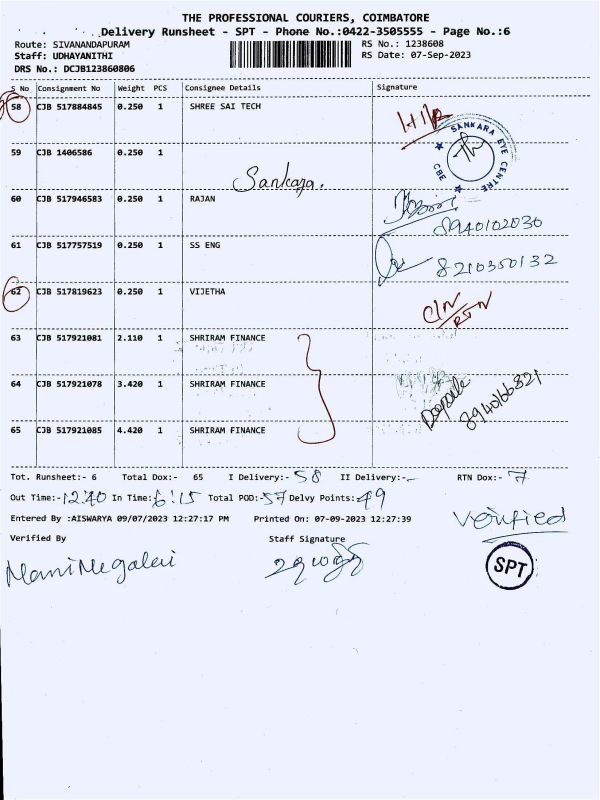 THE PROFESSIONAL COURIERS, COIMBATORE
Delivery Runsheet - SPT - Phone No.:0422-3505555 - Page No.:6
Route: SIVANANDAPURAM RS No.: 1238608
Staff: UDHAYANITHI RS Date: 07-Sep-2023
DRS No.: DCJB123860806
S No Consignment No Weight PCS Consignee Details Signature
58 CJB 517884845 0.250 1 SHREE SAI TECH
SANKARA EYE CENTRE CBE
59 CJB 1406586 0.250 1
Sankara.
60 CJB 517946583 0.250 1 RAJAN
8940102030
61 CJB 517757519 0.250 1 SS ENG
8210350132
62 CJB 517819623 0.250 1 VIJETHA
C/N
RTN
63 CJB 517921081 2.110 1 SHRIRAM FINANCE
64 CJB 517921078 3.420 1 SHRIRAM FINANCE
8940166321
65 CJB 517921085 4.420 1 SHRIRAM FINANCE
Tot. Runsheet:- 6 Total Dox:- 65 I Delivery:- 58 II Delivery:-- RTN Dox:- 7
Out Time:-12.40 In Time:6:15 Total POD:-57 Delvy Points:-49
Entered By :AISWARYA 09/07/2023 12:27:17 PM Printed On: 07-09-2023 12:27:39
Verified
Verified By Staff Signature
ManiMegalai உதயநிதி
SPT